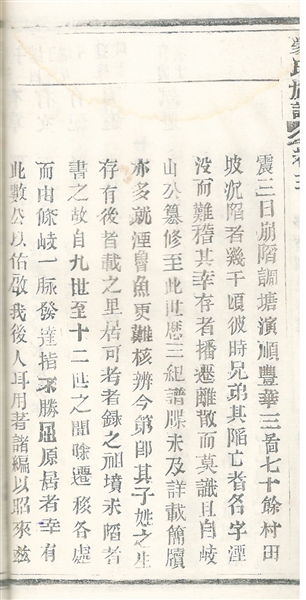 氏族譜
震三日崩陷調塘演順豐華三啚七十餘村田
坡沉陷者幾千頃彼時兄弟其陷亡者名字湮
没而難稽其幸存者播遷離散而莫識且自岐
山公纂修至此世歷三紀譜牒未及詳載簡牘
亦多就湮魯魚更難核辨今第卽其子姓之生
存有後者載之里居可考者録之祖墳未陷者
書之故自九世至十二世之間除遷移各處
而由條岐一脉發達指不勝屈原居者幸有
此數公以佑啟我後人耳用者諸編以昭來兹